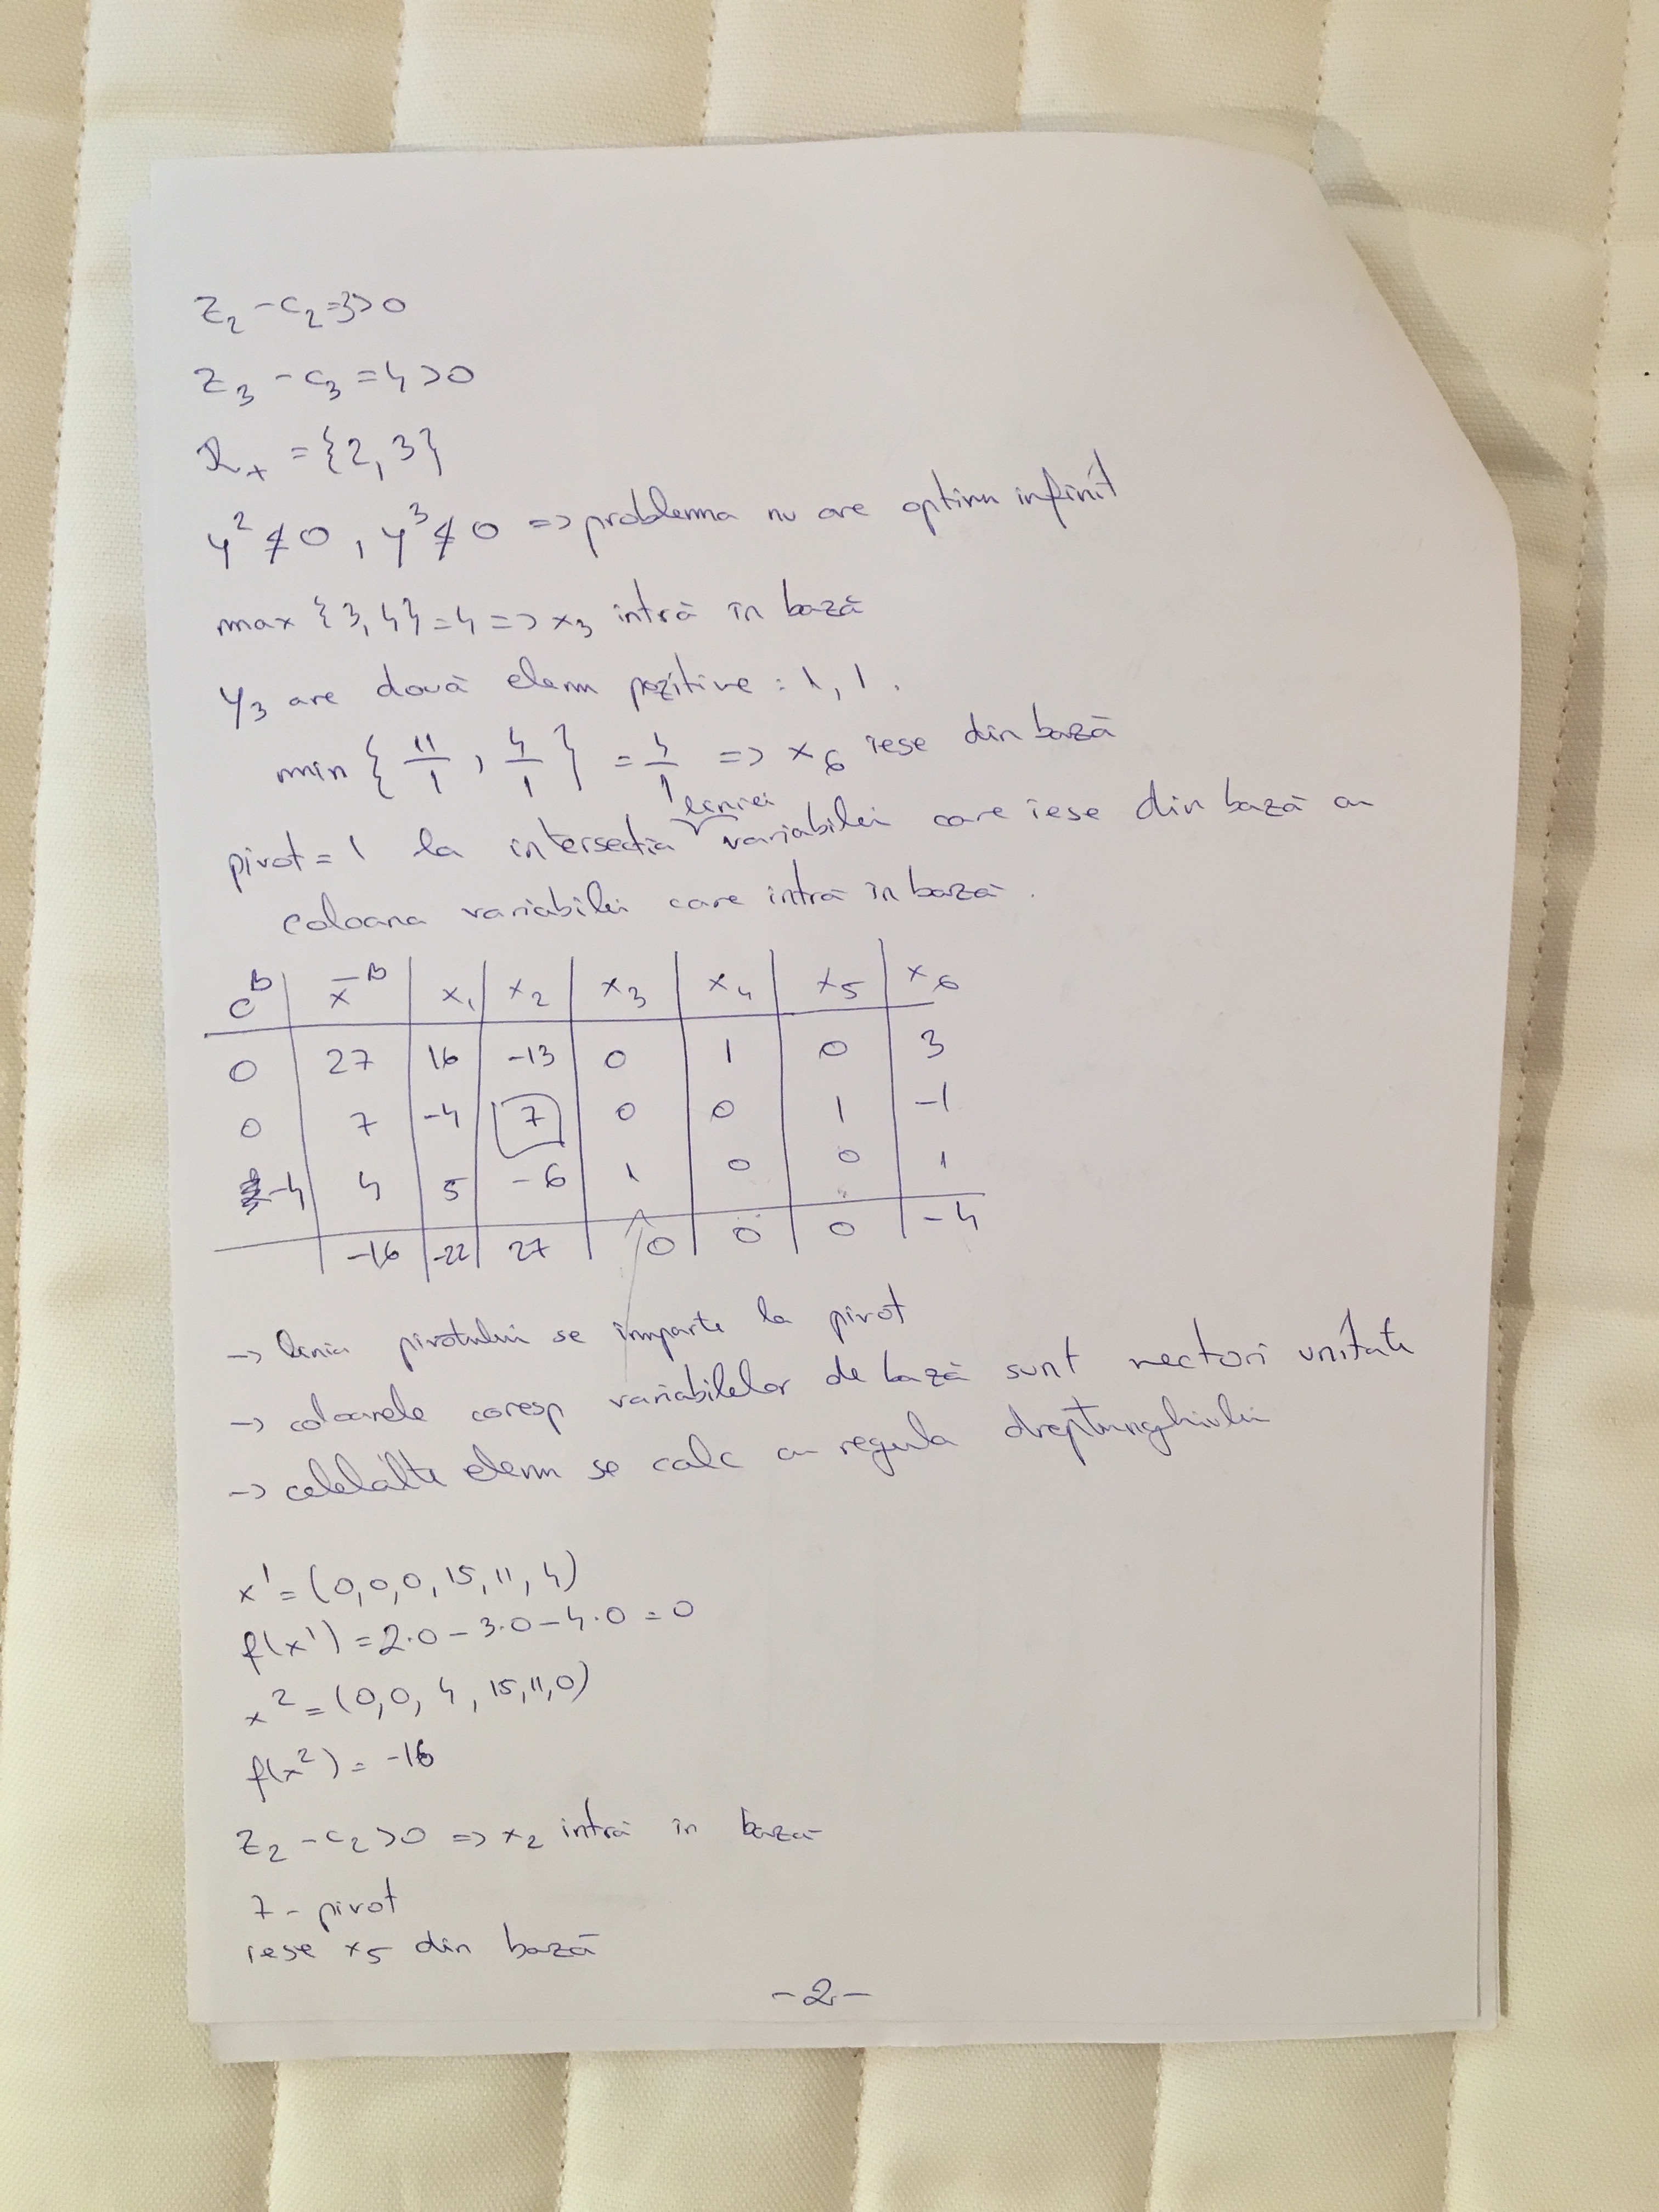 z₂ - c₂ = 3 > 0
z₃ - c₃ = 4 > 0
R₊ = {2, 3}
y² ≰ 0, y³ ≰ 0 => problema nu are optim infinit
max {3, 4} = 4 => x₃ intră în bază
y₃ are două elem pozitive: 1, 1.
min {11/1, 4/1} = 4/1 => x₆ iese din bază
pivot = 1 la intersectia liniei variabilei care iese din bază cu
coloana variabilei care intră în bază.
c^B x̄^B x₁ x₂ x₃ x₄ x₅ x₆
0 27 16 -13 0 1 0 3
0 7 -4 7 0 0 1 -1
-4 4 5 -6 1 0 0 1
-16 -22 27 0 0 0 -4
-> linia pivotului se împarte la pivot
-> coloanele coresp variabilelor de bază sunt vectori unitate
-> celelalte elem se calc cu regula dreptunghiului
x¹ = (0, 0, 0, 15, 11, 4)
f(x¹) = 2·0 - 3·0 - 4·0 = 0
x² = (0, 0, 4, 15, 11, 0)
f(x²) = -16
z₂ - c₂ > 0 => x₂ intră în bază
7 - pivot
iese x₅ din bază
- 2 -